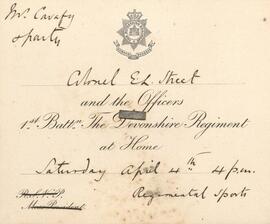 Mr. Cavafy
& party
Colonel E.L. Street
and the Officers
1st. Battn. The Devonshire Regiment
at Home
Saturday April 4th 4 p.m.
R.S.V.P. Regimental Sports
Mess President